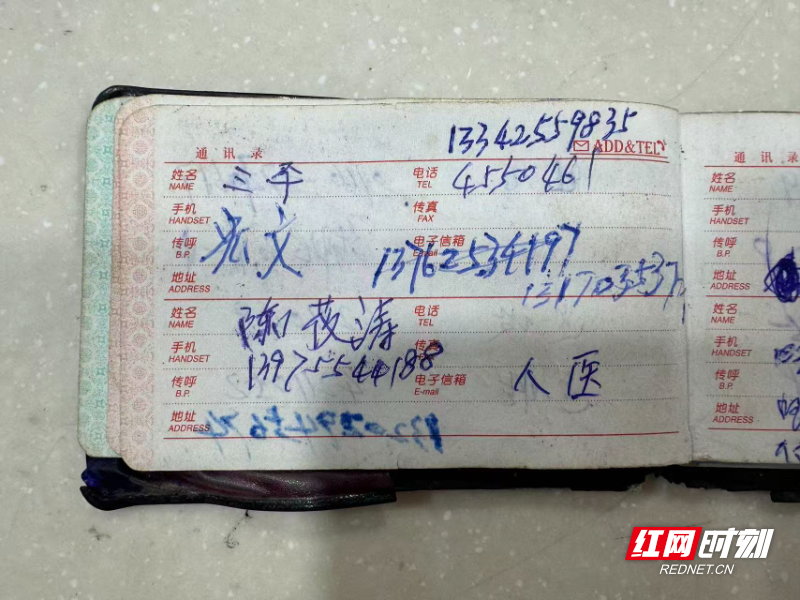 13342559835
通 讯 录
ADD&TEL
姓名 三平 电话 4550461
NAME TEL
手机 传真
HANDSET FAX
传呼 宏文 电子信箱 13762534197
B.P. E-mail
地址
ADDRESS
姓名 陈茂涛 电话
NAME TEL
手机 13975544188 传真
HANDSET
传呼 电子信箱 人医
B.P. E-mail
地址
ADDRESS
通 讯 录
姓名
NAME
手机
HANDSET
传呼
B.P.
地址
ADDRESS
姓名
NAME
手机
HANDSET
传呼
B.P.
地址
ADDRESS
红网时刻
REDNET.CN